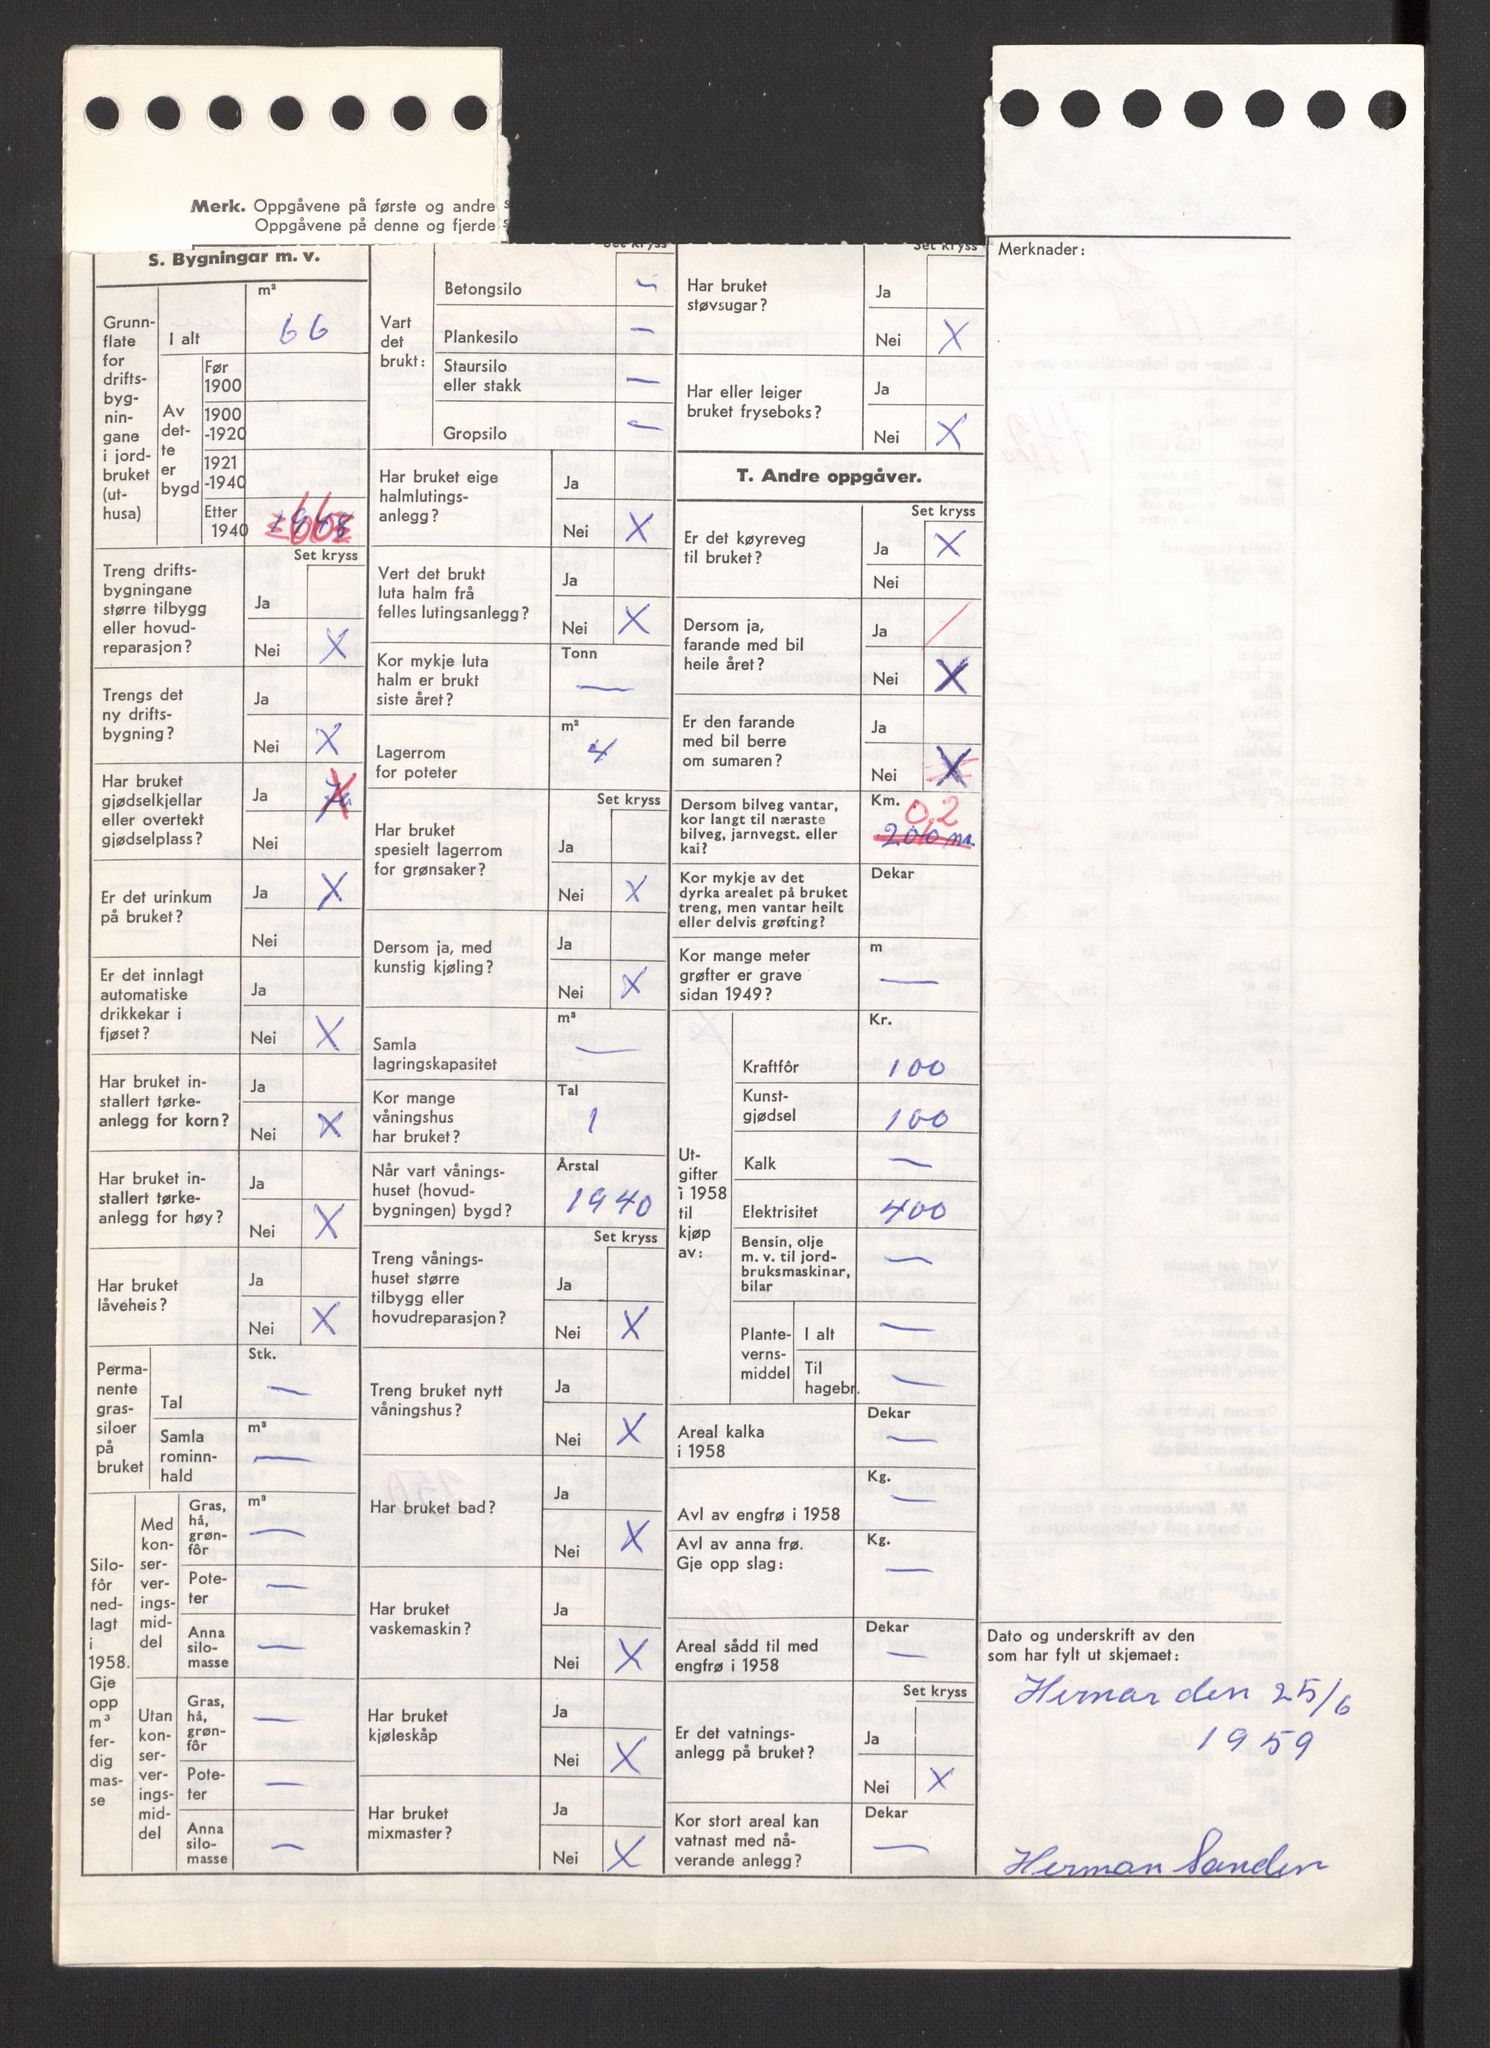 Merk. Oppgåvene på første og andre s
Oppgåvene på denne og fjerde s
S. Bygningar m. v.
Grunn-
flate
for
drifts-
byg-
nin-
gane
i jord-
bruket
(ut-
husa)
m²
I alt
66
Av
det-
te
er
bygd
Før
1900
1900
-1920
1921
-1940
Etter
1940
66
Set kryss
Treng drifts-
bygningane
større tilbygg
eller hovud-
reparasjon?
Ja
Nei X
Trengs det
ny drifts-
bygning?
Ja
Nei X
Har bruket
gjødselkjellar
eller overtekt
gjødselplass?
Ja X
Nei
Er det urinkum
på bruket?
Ja X
Nei
Er det innlagt
automatiske
drikkekar i
fjøset?
Ja
Nei X
Har bruket in-
stallert tørke-
anlegg for korn?
Ja
Nei X
Har bruket in-
stallert tørke-
anlegg for høy?
Ja
Nei X
Har bruket
låveheis?
Ja
Nei X
Perma-
nente
gras-
siloer
på
bruket
Stk.
Tal —
Samla
rominn-
hald
m³
—
Silo-
fôr
ned-
lagt
i
1958.
Gje
opp
m³
fer-
dig
mas-
se
Med
kon-
ser-
ver-
ings-
mid-
del
Gras,
hå,
grøn-
fôr
m³
—
Pote-
ter
—
Anna
silo-
masse
—
Utan
kon-
ser-
ver-
ings-
mid-
del
Gras,
hå,
grøn-
fôr
—
Pote-
ter
—
Anna
silo-
masse
—
Set kryss
Vart
det
brukt:
Betongsilo —
Plankesilo —
Staursilo
eller stakk —
Gropsilo —
Har bruket eige
halmlutings-
anlegg?
Ja
Nei X
Vert det brukt
luta halm frå
felles lutingsanlegg?
Ja
Nei X
Kor mykje luta
halm er brukt
siste året?
Tonn
—
Lagerrom
for poteter
m²
4
Set kryss
Har bruket
spesielt lagerrom
for grønsaker?
Ja
Nei X
Dersom ja, med
kunstig kjøling?
Ja
Nei X
Samla
lagringskapasitet
m³
—
Kor mange
våningshus
har bruket?
Tal
1
Når vart vånings-
huset (hovud-
bygningen) bygd?
Årstal
1940
Set kryss
Treng vånings-
huset større
tilbygg eller
hovudreparasjon?
Ja
Nei X
Treng bruket nytt
våningshus?
Ja
Nei X
Har bruket bad?
Ja
Nei X
Har bruket
vaskemaskin?
Ja
Nei X
Har bruket
kjøleskåp
Ja
Nei X
Har bruket
mixmaster?
Ja
Nei X
Set kryss
Har bruket
støvsugar?
Ja
Nei X
Har eller leiger
bruket fryseboks?
Ja
Nei X
T. Andre oppgåver.
Set kryss
Er det køyreveg
til bruket?
Ja X
Nei
Dersom ja,
farande med bil
heile året?
Ja /
Nei X
Er den farande
med bil berre
om sumaren?
Ja
Nei X
Dersom bilveg vantar,
kor langt til næraste
bilveg, jarnvegst. eller
kai?
Km.
0,2
200 m.
Kor mykje av det
dyrka arealet på bruket
treng, men vantar heilt
eller delvis grøfting?
Dekar
Kor mange meter
grøfter er grave
sidan 1949?
m
—
Ut-
gifter
i 1958
til
kjøp
av:
Kr.
Kraftfôr 100
Kunst-
gjødsel 100
Kalk —
Elektrisitet 400
Bensin, olje
m. v. til jord-
bruksmaskinar,
bilar
—
Plante-
verns-
middel
I alt —
Til
hagebr. —
Areal kalka
i 1958
Dekar
—
Avl av engfrø i 1958
Kg.
—
Avl av anna frø.
Gje opp slag:
Kg.
—
Areal sådd til med
engfrø i 1958
Dekar
—
Set kryss
Er det vatnings-
anlegg på bruket?
Ja
Nei X
Kor stort areal kan
vatnast med nå-
verande anlegg?
Dekar
—
Merknader:
Dato og underskrift av den
som har fylt ut skjemaet:
Hernar den 25/6
1959
Herman Sanden